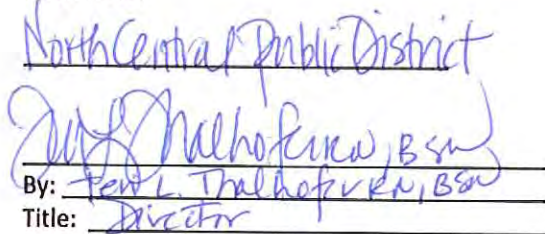 North Central Public District
Thalhofer RN, BSN
By: Teri L. Thalhofer RN, BSN
Title: Director